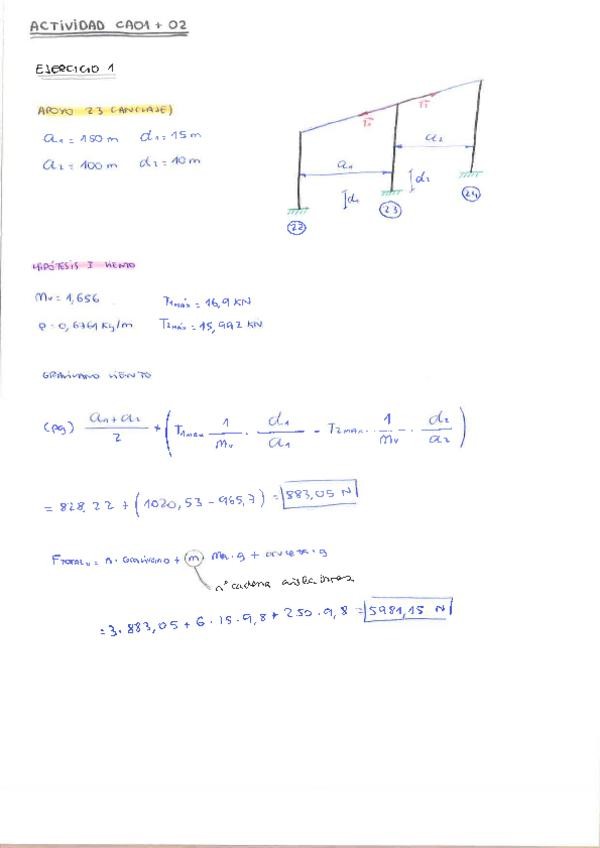 ACTIVIDAD CA01 + 02
EJERCICIO 1
APOYO 23 (ANCLAJE)
a1 = 150 m d1 = 15 m
a2 = 100 m d2 = 10 m
T1 T2
a1 a2
d1 d2
22 23 24
HIPÓTESIS I VIENTO
mv = 1,656 T1máx = 16,9 KN
P = 0,6761 Kg/m T2máx = 15,992 KN
GRAVIVANO VIENTO
(pg) a1+a2/2 + (T1max 1/mv · d1/a1 - T2max · 1/mv · d2/a2)
= 828,22 + (1020,53 - 965,7) = 883,05 N
FTOTALv = n · GRAVIVANO + m · Ma · g + cruceta · g
nº cadena aisladores
= 3 · 883,05 + 6 · 15 · 9,8 + 250 · 9,8 = 5981,15 N